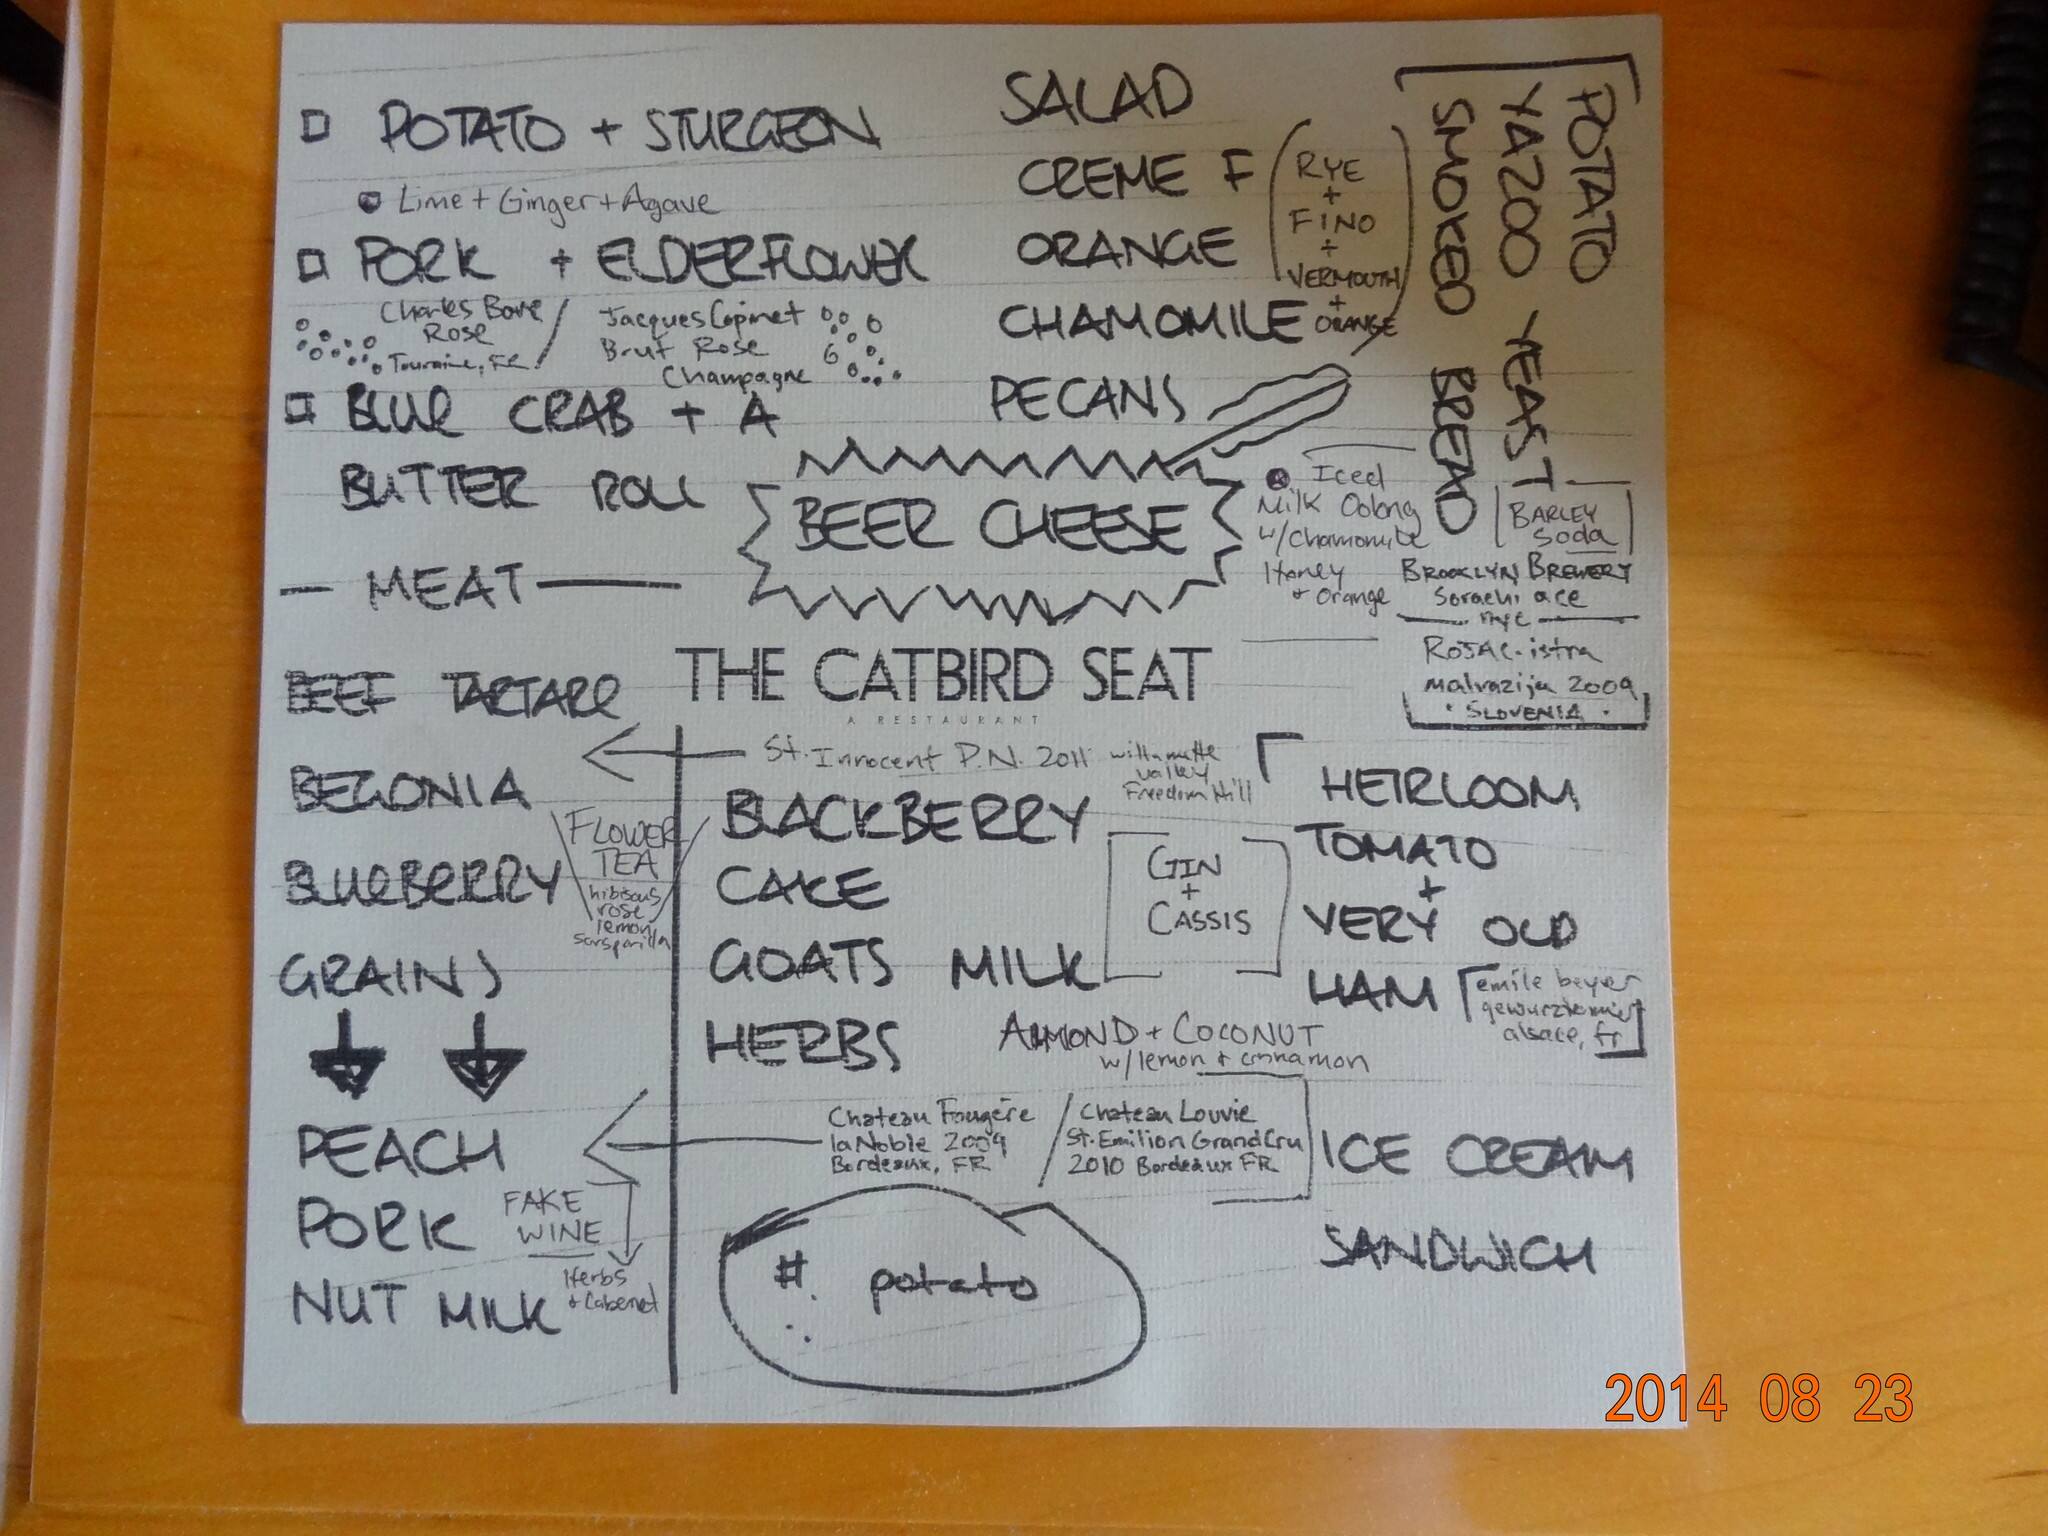 POTATO + STURGEON
Lime + Ginger + Agave
PORK + ELDERFLOWER
Charles Bove
Rose
Touraine, FR
Jacques Copinet
Brut Rose
Champagne
BLUE CRAB + A
BUTTER ROLL
MEAT
BEEF TARTARE
BEGONIA
BLUEBERRY
GRAINS
FLOWER
TEA
hibiscus
rose
lemon
sarsparilla
PEACH
PORK
NUT MILK
FAKE
WINE
Herbs
+ Cabernet
SALAD
CREME F
ORANGE
CHAMOMILE
PECANS
RYE
+
FINO
+
VERMOUTH
+
ORANGE
BEER CHEESE
Iced
Milk Oolong
w/chamomile
Honey
+ Orange
POTATO
YAZOO YEAST
SMOKED BREAD
BARLEY
Soda
BROOKLYN BREWERY
Sorachi ace
nyc
ROJAC-istra
malvazija 2009
SLOVENIA
THE CATBIRD SEAT
A RESTAURANT
St. Innocent P.N. 2011
willamette
valley
Freedom Hill
BLACKBERRY
CAKE
GOATS MILK
HERBS
GIN
+
CASSIS
ALMOND + COCONUT
w/lemon + cinnamon
Chateau Fougère
la Noble 2009
Bordeaux, FR
Chateau Louvie
St. Emilion Grand Cru
2010 Bordeaux FR
#. potato
HEIRLOOM
TOMATO
+
VERY OLD
HAM
emile beyer
gewurztraminer
alsace, fr
ICE CREAM
SANDWICH
2014 08 23